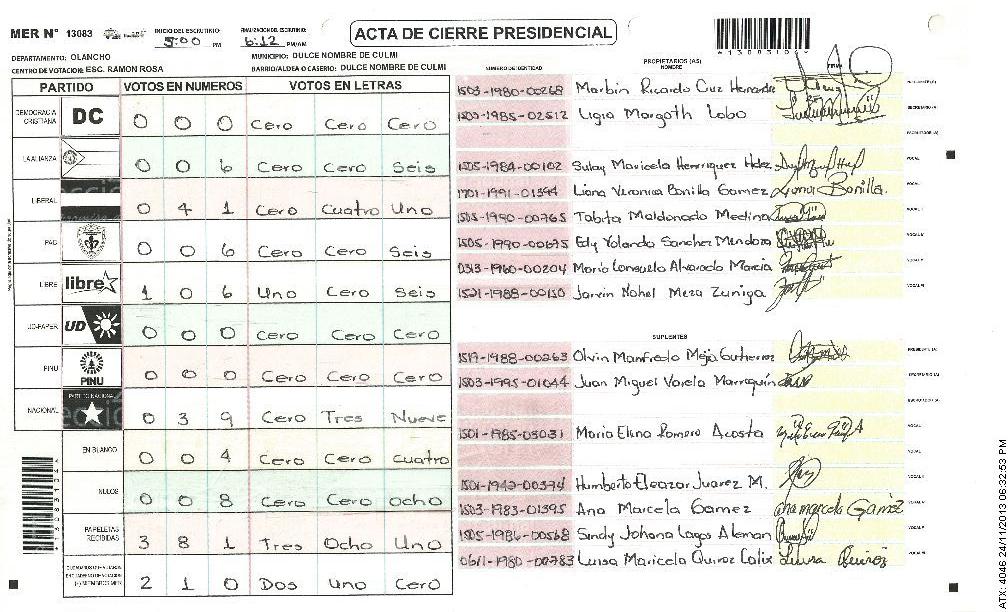 MER N° 13083
INICIO DEL ESCRUTINIO: 5:00 PM
FINALIZACION DEL ESCRUTINIO: 6:12 PM/AM
ACTA DE CIERRE PRESIDENCIAL
DEPARTAMENTO: OLANCHO
MUNICIPIO: DULCE NOMBRE DE CULMI
CENTRO DE VOTACION: ESC. RAMON ROSA
BARRIO/ALDEA O CASERIO: DULCE NOMBRE DE CULMI
PARTIDO VOTOS EN NUMEROS VOTOS EN LETRAS
DEMOCRACIA CRISTIANA DC 0 0 0 Cero Cero Cero
LA ALIANZA 0 0 6 Cero Cero Seis
LIBERAL 0 4 1 Cero Cuatro Uno
PAC 0 0 6 Cero Cero Seis
LIBRE libre 1 0 6 Uno Cero Seis
UD-FAPER UD 0 0 0 Cero Cero Cero
PINU PINU 0 0 0 Cero Cero Cero
NACIONAL PARTIDO NACIONAL 0 3 9 Cero Tres Nueve
EN BLANCO 0 0 4 Cero Cero Cuatro
NULOS 0 0 8 Cero Cero Ocho
PAPELETAS RECIBIDAS 3 8 1 Tres Ocho Uno
2 1 0 Dos Uno Cero
NUMERO DE IDENTIDAD
PROPIETARIOS (AS)
NOMBRE
FIRMA
1503-1980-00268 Marbin Ricardo Cruz Hernandez
1503-1985-02512 Ligia Margoth Lobo
1505-1984-00102 Sulay Maricela Henrriquez Hdez
1701-1991-01394 Liana Veronica Bonilla Gomez
1505-1990-00765 Tabita Maldonado Medina
1505-1990-00695 Edy Yolanda Sanchez Mendoza
0313-1960-00204 Maria Consuelo Alvarado Murcia
1521-1988-00150 Jarvin Nohel Meza Zuniga
SUPLENTES
1517-1988-00263 Olvin Manfredo Mejia Gutierrez
1503-1995-01044 Juan Miguel Varela Marroquin
1501-1985-03031 Maria Elena Romero Acosta
1501-1942-00394 Humberto Eleazar Juarez M.
1503-1983-01395 Ana Marcela Gomez
1505-1986-00568 Sindy Johana Lagos Aleman
0611-1980-00783 Luisa Maricela Quiroz Calix
ATX: 4046 24/11/2013 06:32:53 PM